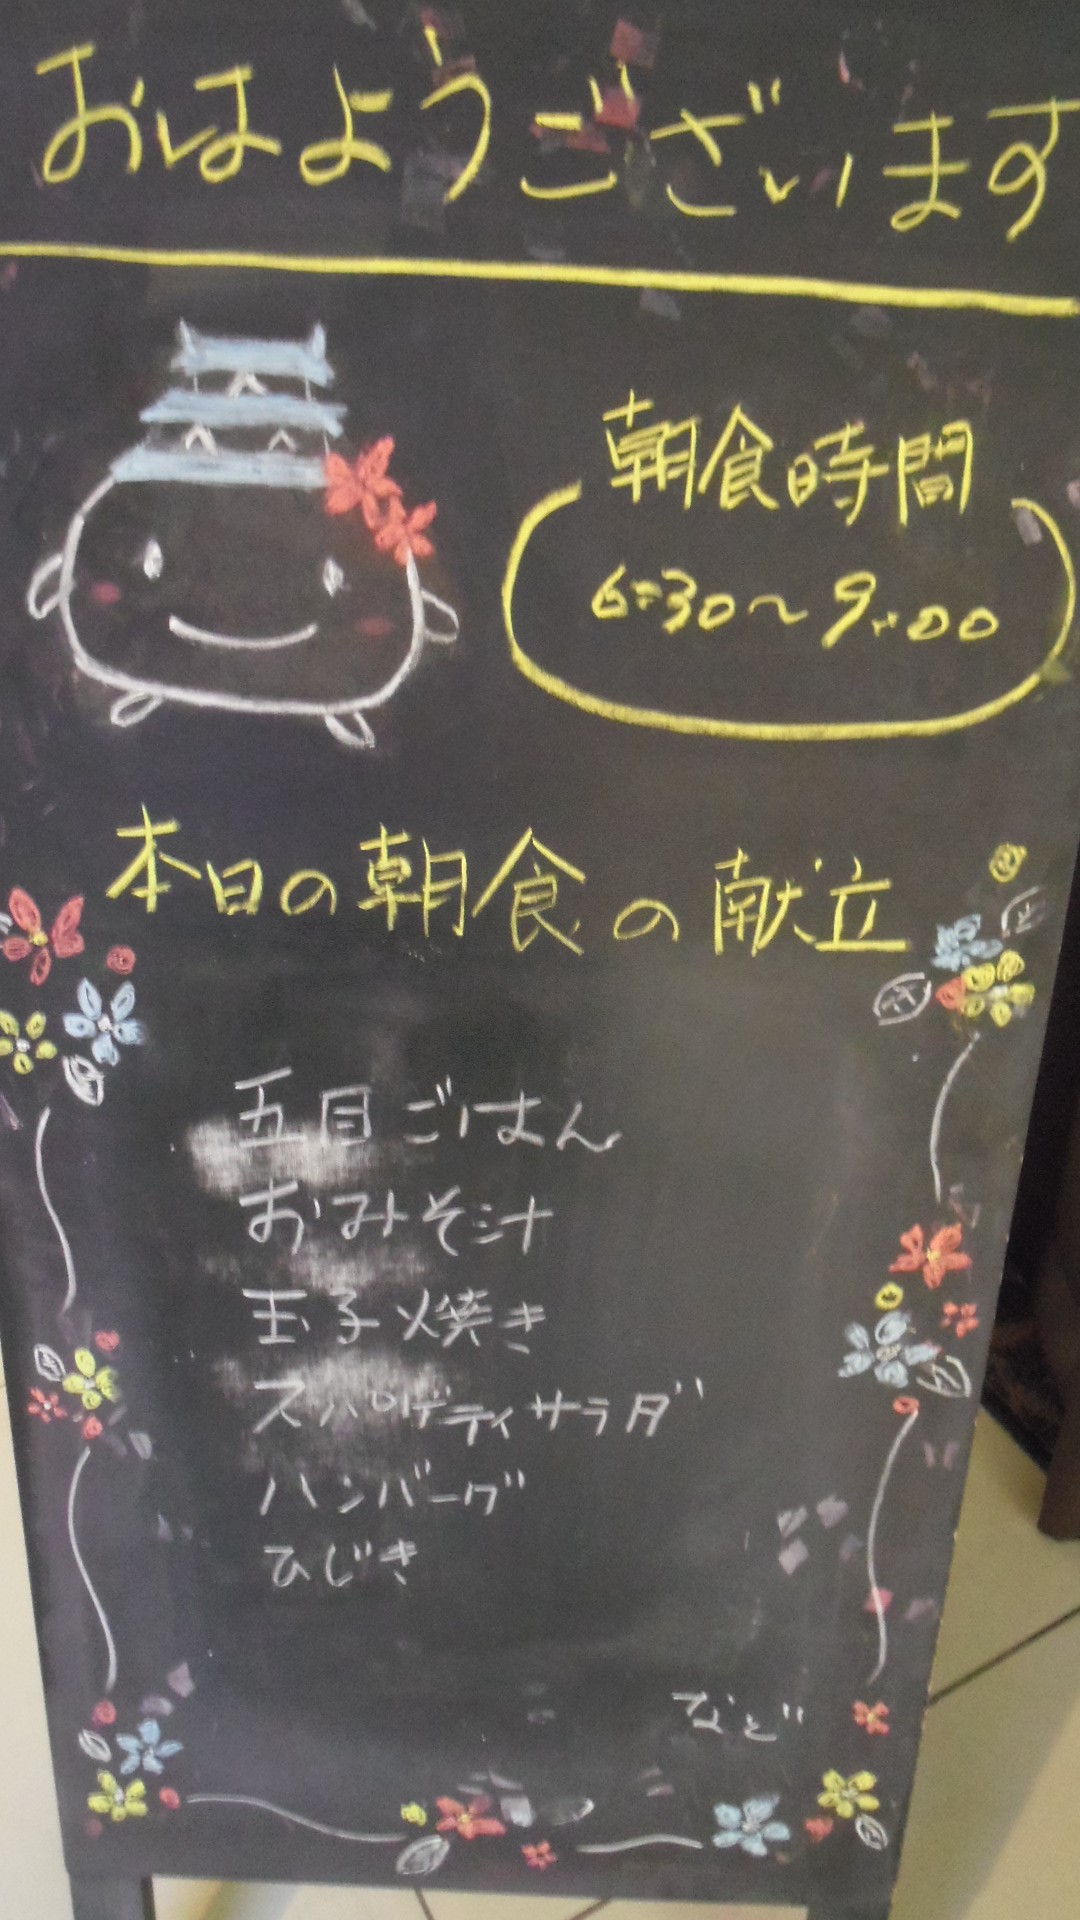 おはようございます
朝食時間
6:30～9:00
本日の朝食の献立
五目ごはん
おみそ汁
玉子焼き
スパゲティサラダ
ハンバーグ
ひじき
など